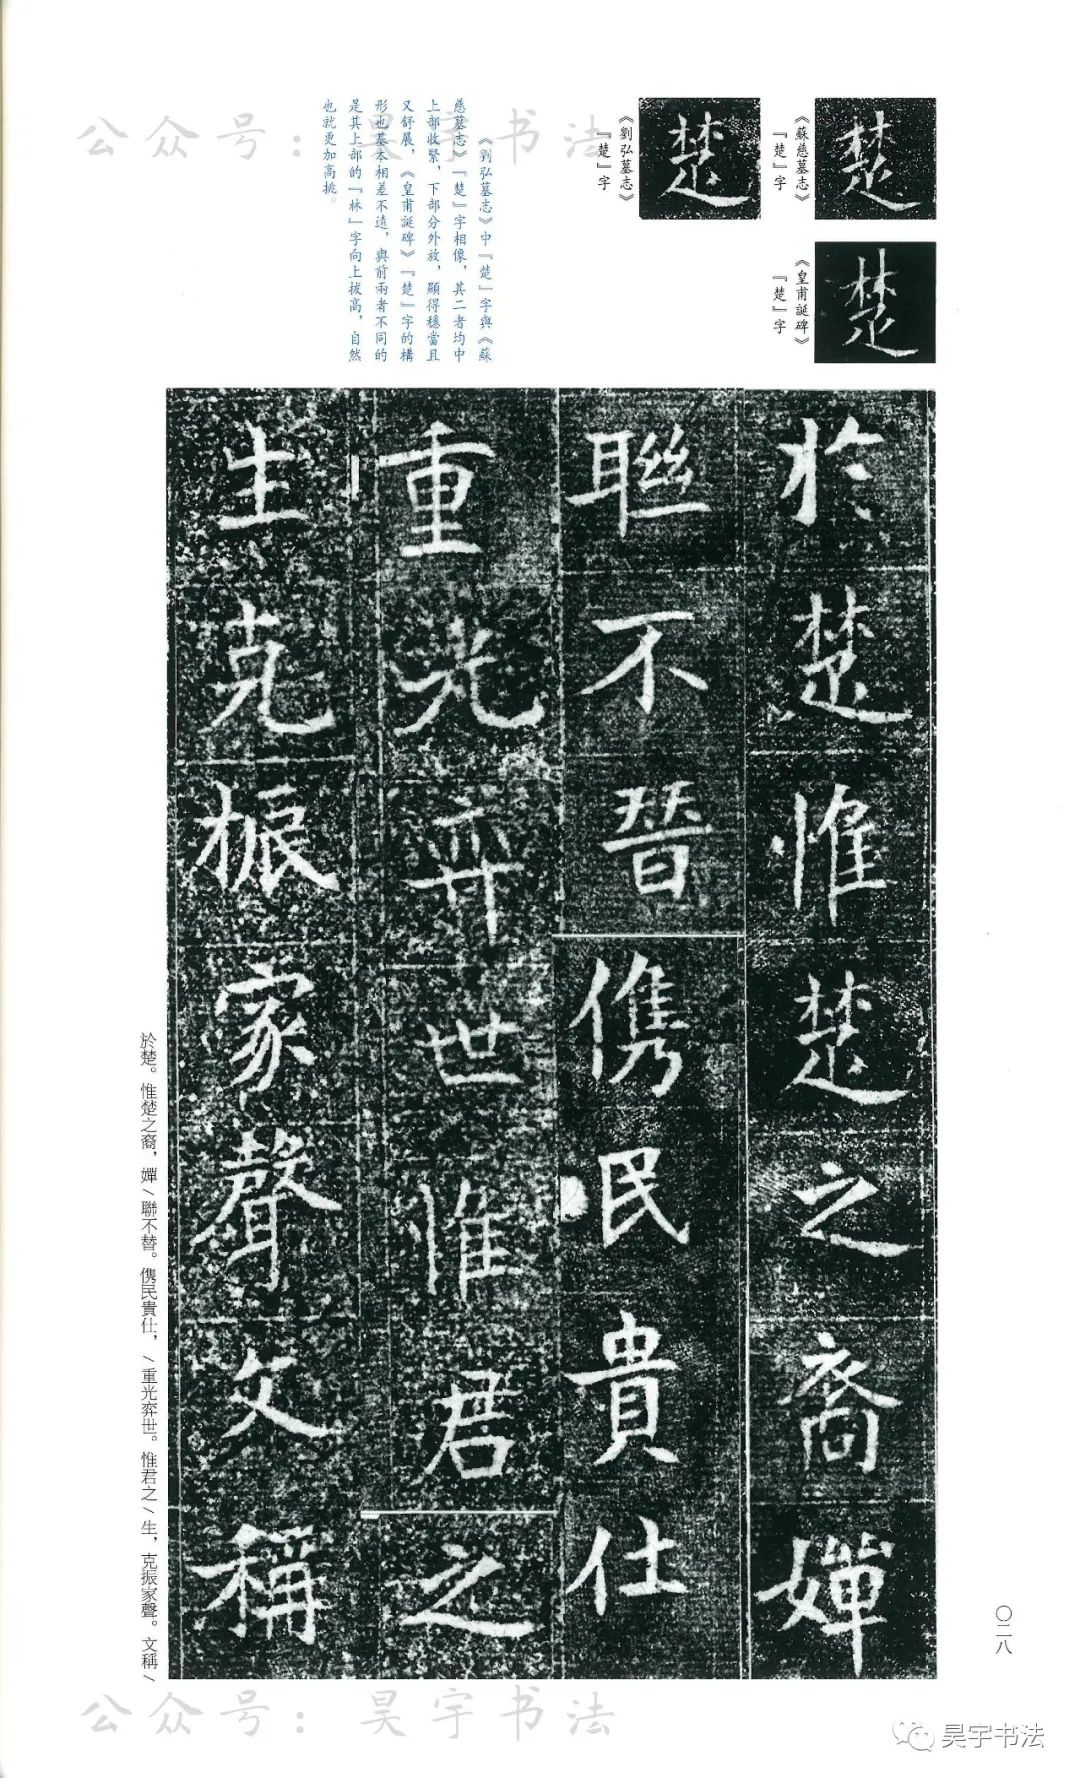 公众号：昊宇书法
《蘇慈墓志》
『楚』字
《劉弘墓志》
『楚』字
《皇甫誕碑》
『楚』字
《劉弘墓志》中『楚』字與《蘇
慈墓志》『楚』字相像，其二者均中
上部收緊，下部分外放，顯得穩當且
又舒展，《皇甫誕碑》『楚』字的構
形也基本相差不遠，與前兩者不同的
是其上部的『林』字向上拔高，自然
也就更加高挑。
楚
楚
楚
於楚惟楚之裔嬋
聯不替儁民貴仕
重光弈世惟君之
生克振家聲文稱
於楚。惟楚之裔，嬋/聯不替。儁民貴仕，/重光弈世。惟君之/生，克振家聲。文稱/
〇二八
公众号：昊宇书法
昊宇书法